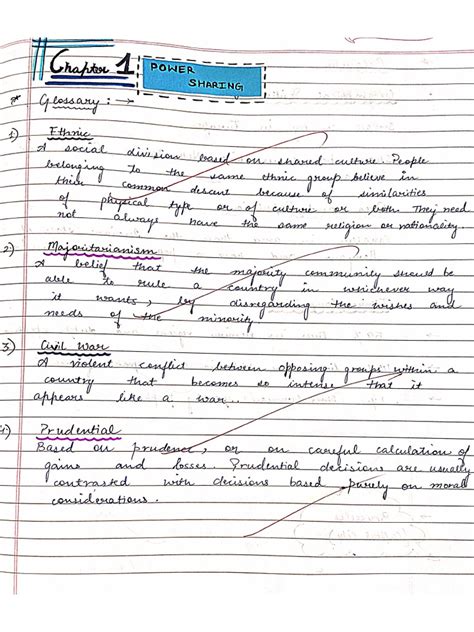 Chapter 1 POWER
SHARING
Glossary : →
1) Ethnic
A social division based on shared culture. People
belonging to the same ethnic group believe in
their common descent because of similarities
of physical type or of culture or both. They need
not always have the same religion or nationality.
2) Majoritarianism
A belief that the majority community should be
able to rule a country in whichever way
it wants, by disregarding the wishes and
needs of the minority.
3) Civil War
A violent conflict between opposing groups within a
country that becomes so intense that it
appears like a war.
4) Prudential
Based on prudence, or on careful calculation of
gains and losses. Prudential decisions are usually
contrasted with decisions based purely on moral
considerations.